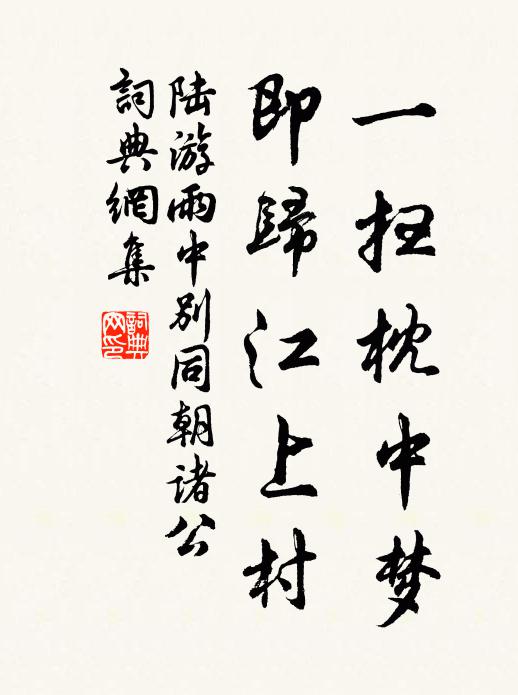 一扫枕中梦
即歸江上村
陆游雨中别同朝诸公
詞典網集
詞典網印